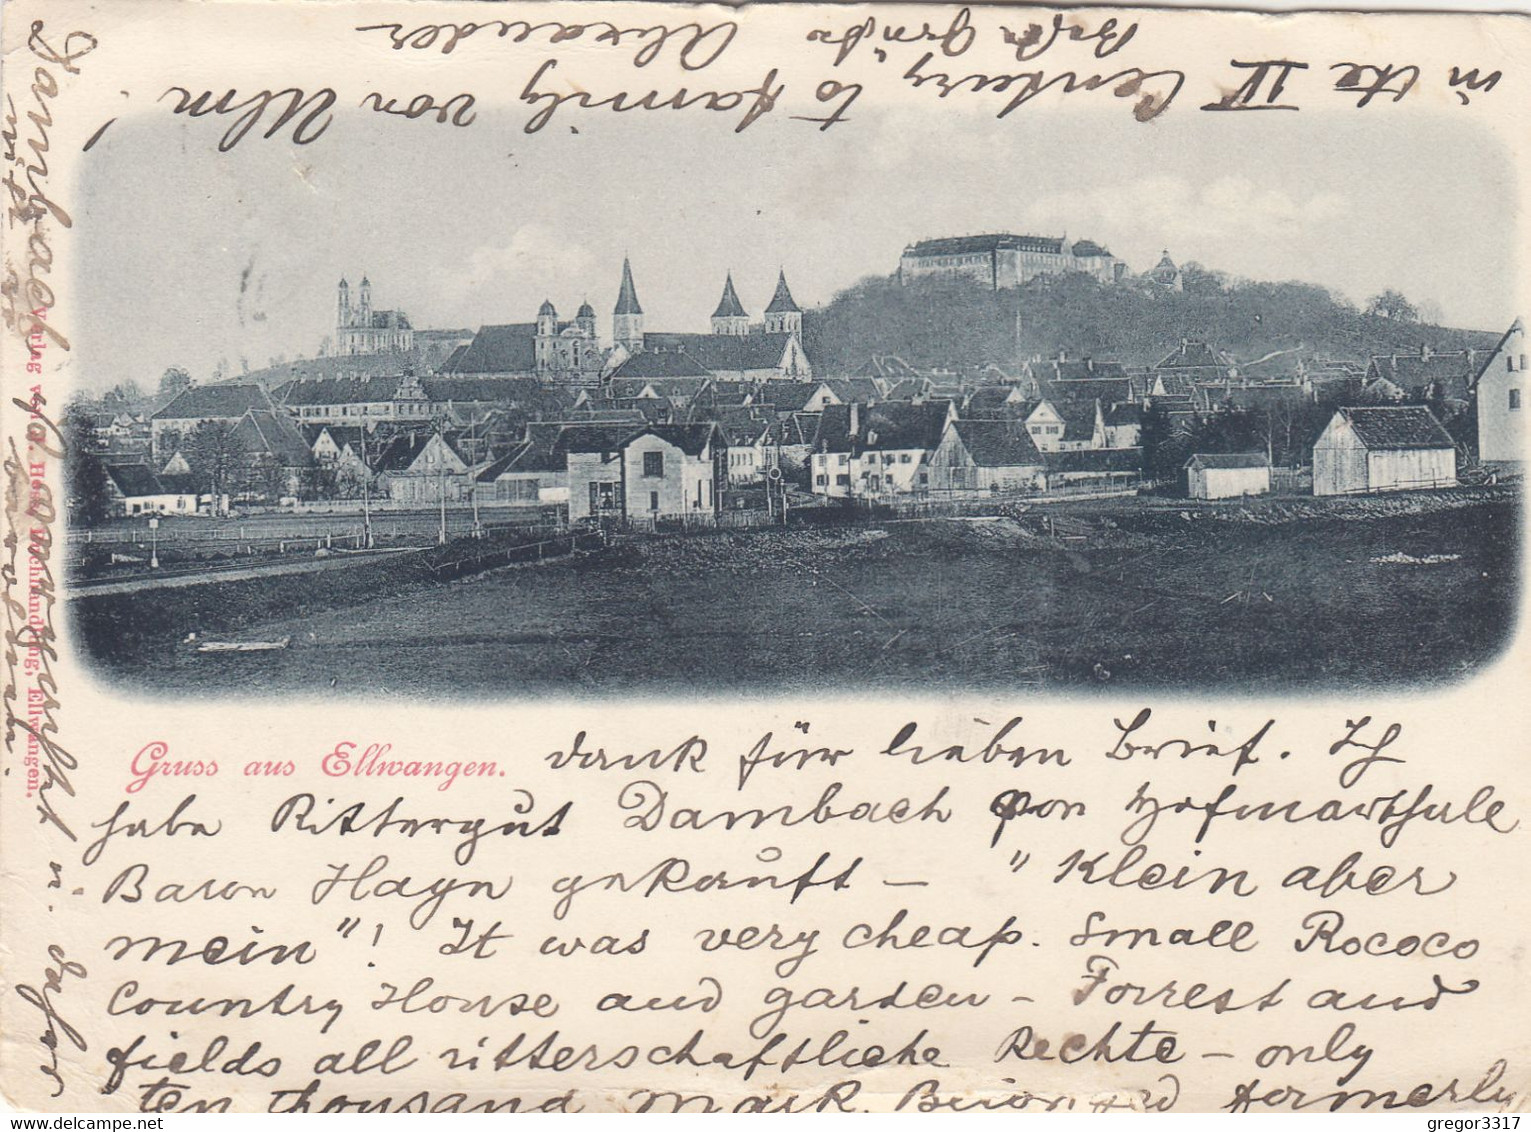 Gruss aus Ellwangen. Dank für lieben Brief. Ich
habe Rittergut Dambach von Hofmarthule
Baron Hayn gekauft — "Klein aber
mein"! It was very cheap. Small Rococo
Country House and garden — Forrest and
fields all ritterschaftliche Rechte — only
ten thousand Mark. formerly
in the IV Century to family von Ulm!
Beste Grüße Alexander
Dambach
Verlag v. Hess, Buchhandlung, Ellwangen.
gregor3317